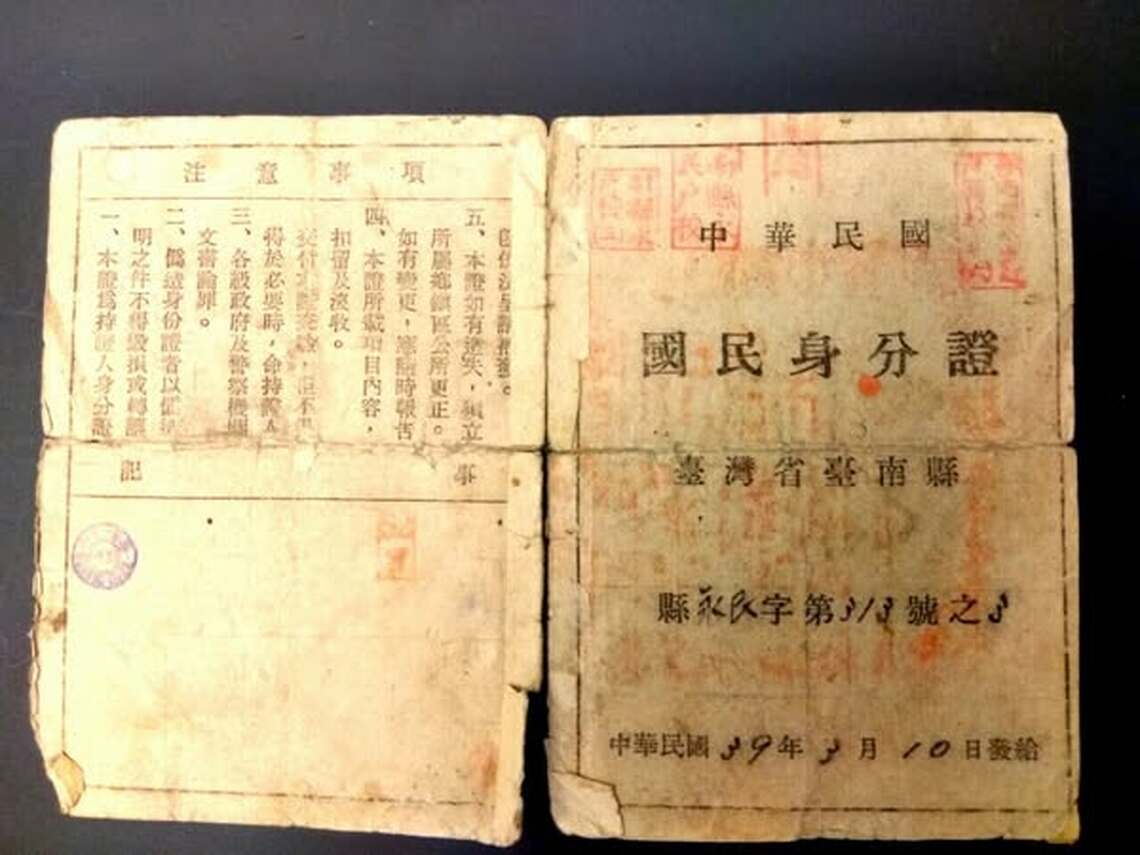 注意事項
一、本證爲持證人身分證
明之件不得毀損或轉讓
二、僞造身份證者以僞造
文書論罪。
三、各級政府及警察機關
得於必要時，命持證人
交付本證查驗，但不得
扣留及沒收。
四、本證所載項目內容，
如有變更，應隨時報告
所屬鄉鎮區公所更正。
五、本證如有遺失，須立
記事
中華民國
國民身分證
臺灣省臺南縣
縣永民字第313號之3
中華民國39年3月10日發給